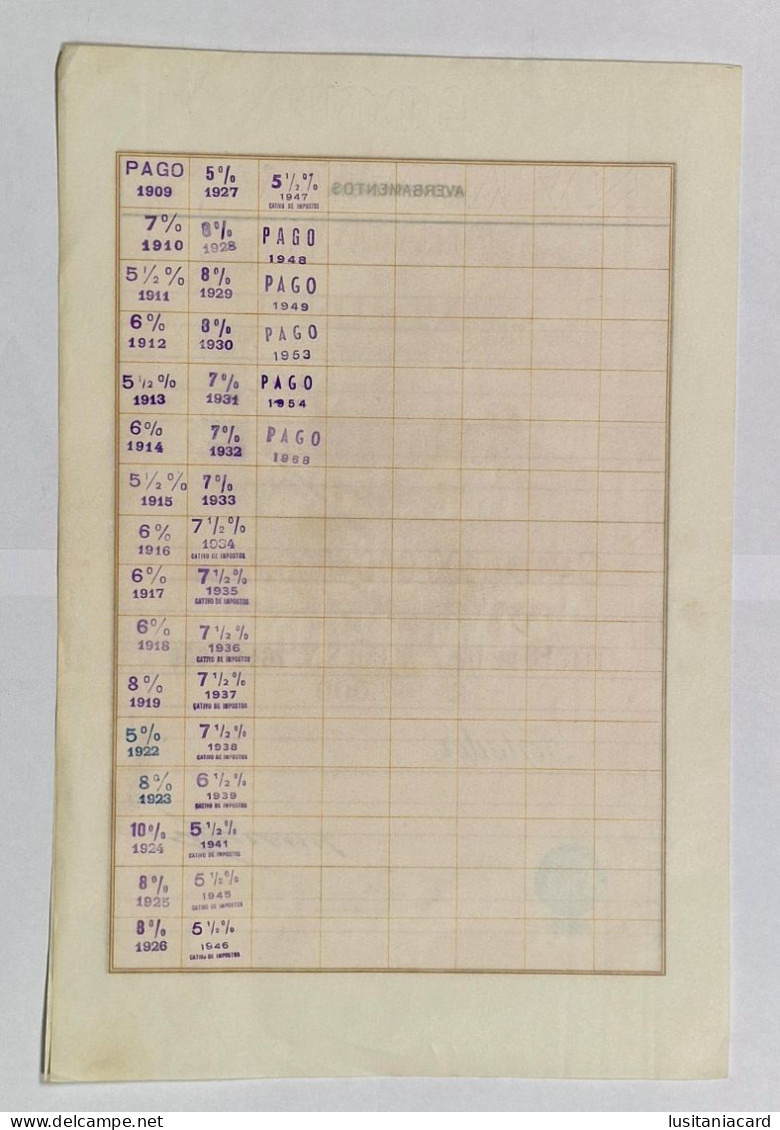 PAGO
1909
7%
1910
5 1/2 %
1911
6%
1912
5 1/2 %
1913
6%
1914
5 1/2 %
1915
6%
1916
6%
1917
6%
1918
8%
1919
5%
1922
8%
1923
10%
1924
8%
1925
8%
1926
5%
1927
8%
1928
8%
1929
8%
1930
7%
1931
7%
1932
7%
1933
7 1/2 %
1934
CATIVO DE IMPOSTOS
7 1/2 %
1935
CATIVO DE IMPOSTOS
7 1/2 %
1936
CATIVO DE IMPOSTOS
7 1/2 %
1937
CATIVO DE IMPOSTOS
7 1/2 %
1938
CATIVO DE IMPOSTOS
6 1/2 %
1939
CATIVO DE IMPOSTOS
5 1/2 %
1941
CATIVO DE IMPOSTOS
5 1/2 %
1945
CATIVO DE IMPOSTOS
5 1/2 %
1946
CATIVO DE IMPOSTOS
5 1/2 %
1947
CATIVO DE IMPOSTOS
PAGO
1948
PAGO
1949
PAGO
1953
PAGO
1954
PAGO
1968
AVERBAMENTOS
lusitaniacard